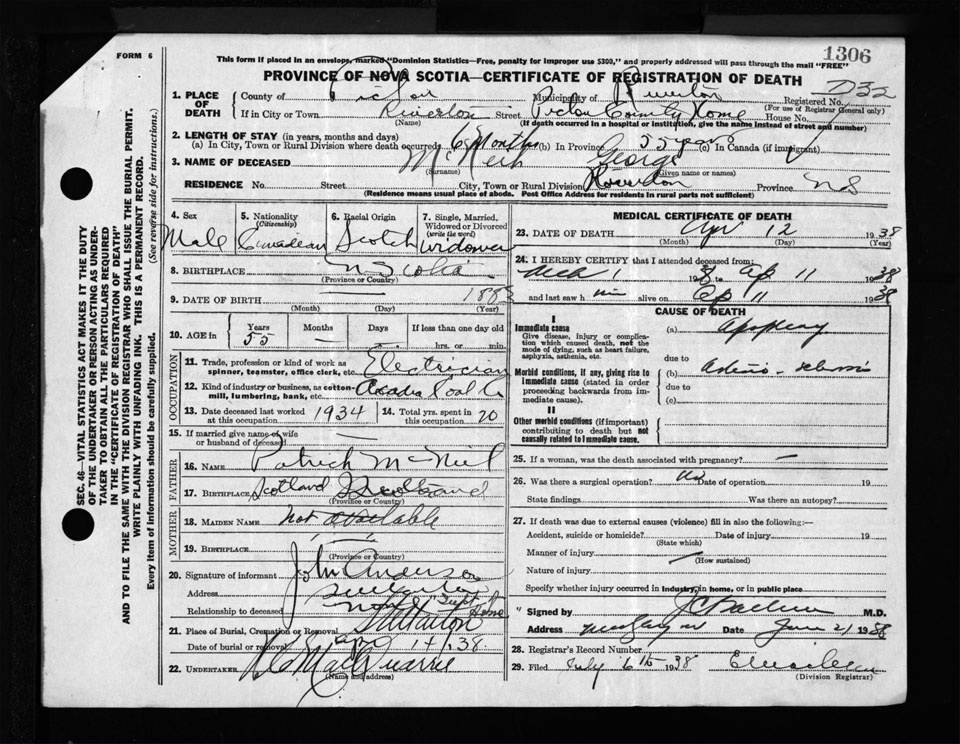 1306
FORM 6
This form if placed in an envelope, marked "Dominion Statistics—Free, penalty for improper use $300," and properly addressed will pass through the mail "FREE"
PROVINCE OF NOVA SCOTIA—CERTIFICATE OF REGISTRATION OF DEATH
D32
1. PLACE OF DEATH
County of Pictou Municipality of Riverton Registered No.
(For use of Registrar General only)
If in City or Town Riverton Street Pictou County Home House No.
(Name) (If death occurred in a hospital or institution, give the name instead of street and number)
2. LENGTH OF STAY (in years, months and days)
(a) In City, Town or Rural Division where death occurred 6 Months (b) In Province 55 years (c) In Canada (if immigrant)
3. NAME OF DECEASED McNeil George
(Surname) (Given name or names)
RESIDENCE No. Street City, Town or Rural Division Riverton Province NS
(Residence means usual place of abode. Post Office Address for residents in rural parts not sufficient)
4. Sex
Male
5. Nationality
(Citizenship)
Canadian
6. Racial Origin
Scotch
7. Single, Married, Widowed or Divorced
(write the word)
Widower
8. BIRTHPLACE N Scotia
(Province or Country)
9. DATE OF BIRTH — 1883
(Month) (Day) (Year)
10. AGE in
Years Months Days If less than one day old
55 — — hrs. or min.
OCCUPATION
11. Trade, profession or kind of work as spinner, teamster, office clerk, etc. Electrician
12. Kind of industry or business, as cotton-mill, lumbering, bank, etc. Acadia Coal Co
13. Date deceased last worked at this occupation 1934
14. Total yrs. spent in this occupation 20
15. If married give name of wife or husband of deceased —
FATHER
16. NAME Patrick McNeil
17. BIRTHPLACE Scotland Scotland
(Province or Country)
MOTHER
18. MAIDEN NAME not available
19. BIRTHPLACE —
(Province or Country)
20. Signature of informant J. M. Anderson
Address
Relationship to deceased none Supt Home
21. Place of Burial, Cremation or Removal
Date of burial or removal Apr 14/38
22. UNDERTAKER MacQuarrie
(Name and address)
MEDICAL CERTIFICATE OF DEATH
23. DATE OF DEATH Apr 12 1938
(Month) (Day) (Year)
24. I HEREBY CERTIFY that I attended deceased from:
1 1938 Ap 11 1938
and last saw him alive on Ap 11 1938
CAUSE OF DEATH
I
Immediate cause
Give disease, injury or complication which caused death, not the mode of dying, such as heart failure, asphyxia, asthenia, etc.
(a) Apoplexy
due to
Morbid conditions, if any, giving rise to immediate cause (stated in order proceeding backwards from immediate cause).
(b) Arterio-sclerosis
due to
(c)
II
Other morbid conditions (if important) contributing to death but not causally related to immediate cause.
25. If a woman, was the death associated with pregnancy? —
26. Was there a surgical operation? No Date of operation 19
State findings Was there an autopsy?
27. If death was due to external causes (violence) fill in also the following:—
Accident, suicide or homicide? Date of injury 19
(State which)
Manner of injury
(How sustained)
Nature of injury
Specify whether injury occurred in Industry, in home, or in public place
Signed by M.D.
Address Date June 21 1938
28. Registrar's Record Number
29. Filed July 6th 1938
(Division Registrar)
SEC. 46—VITAL STATISTICS ACT MAKES IT THE DUTY
OF THE UNDERTAKER OR PERSON ACTING AS UNDER-
TAKER TO OBTAIN ALL THE PARTICULARS REQUIRED
IN THE "CERTIFICATE OF REGISTRATION OF DEATH"
AND TO FILE THE SAME WITH THE DIVISION REGISTRAR WHO SHALL ISSUE THE BURIAL PERMIT.
WRITE PLAINLY WITH UNFADING INK. THIS IS A PERMANENT RECORD.
Every item of information should be carefully supplied. (See reverse side for instructions.)